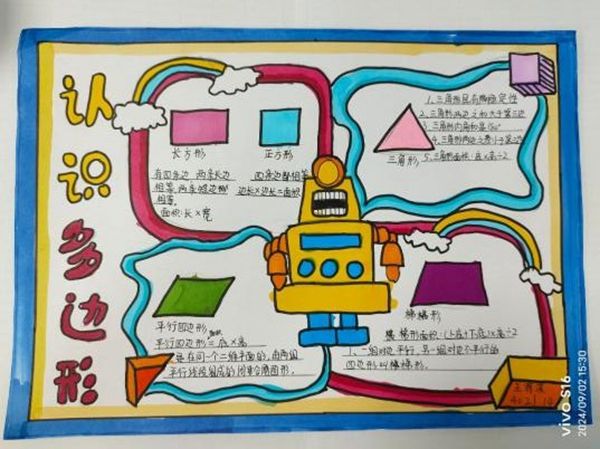 认识多边形
长方形
有四条边 两条长边
相等,两条短边都
相等,
面积:长×宽
正方形
四条边都相等
边长×边长=面积
1、三角形具有稳定性
2、三角形两边之和大于第三边
3、三角形内角和是180°
4、三角形两边之差小于第三边
三角形
5、三角形面积:底×高÷2
平行四边形
平行四边形面积=底×高
是在同一个二维平面的,由两组
平行线段组成的闭合图形.
梯形
梯形面积:(上底+下底)×高÷2
1、一组对边平行,另一组对边不平行的
四边形叫梯形.
402
vivo S16
2024/09/02 15:30